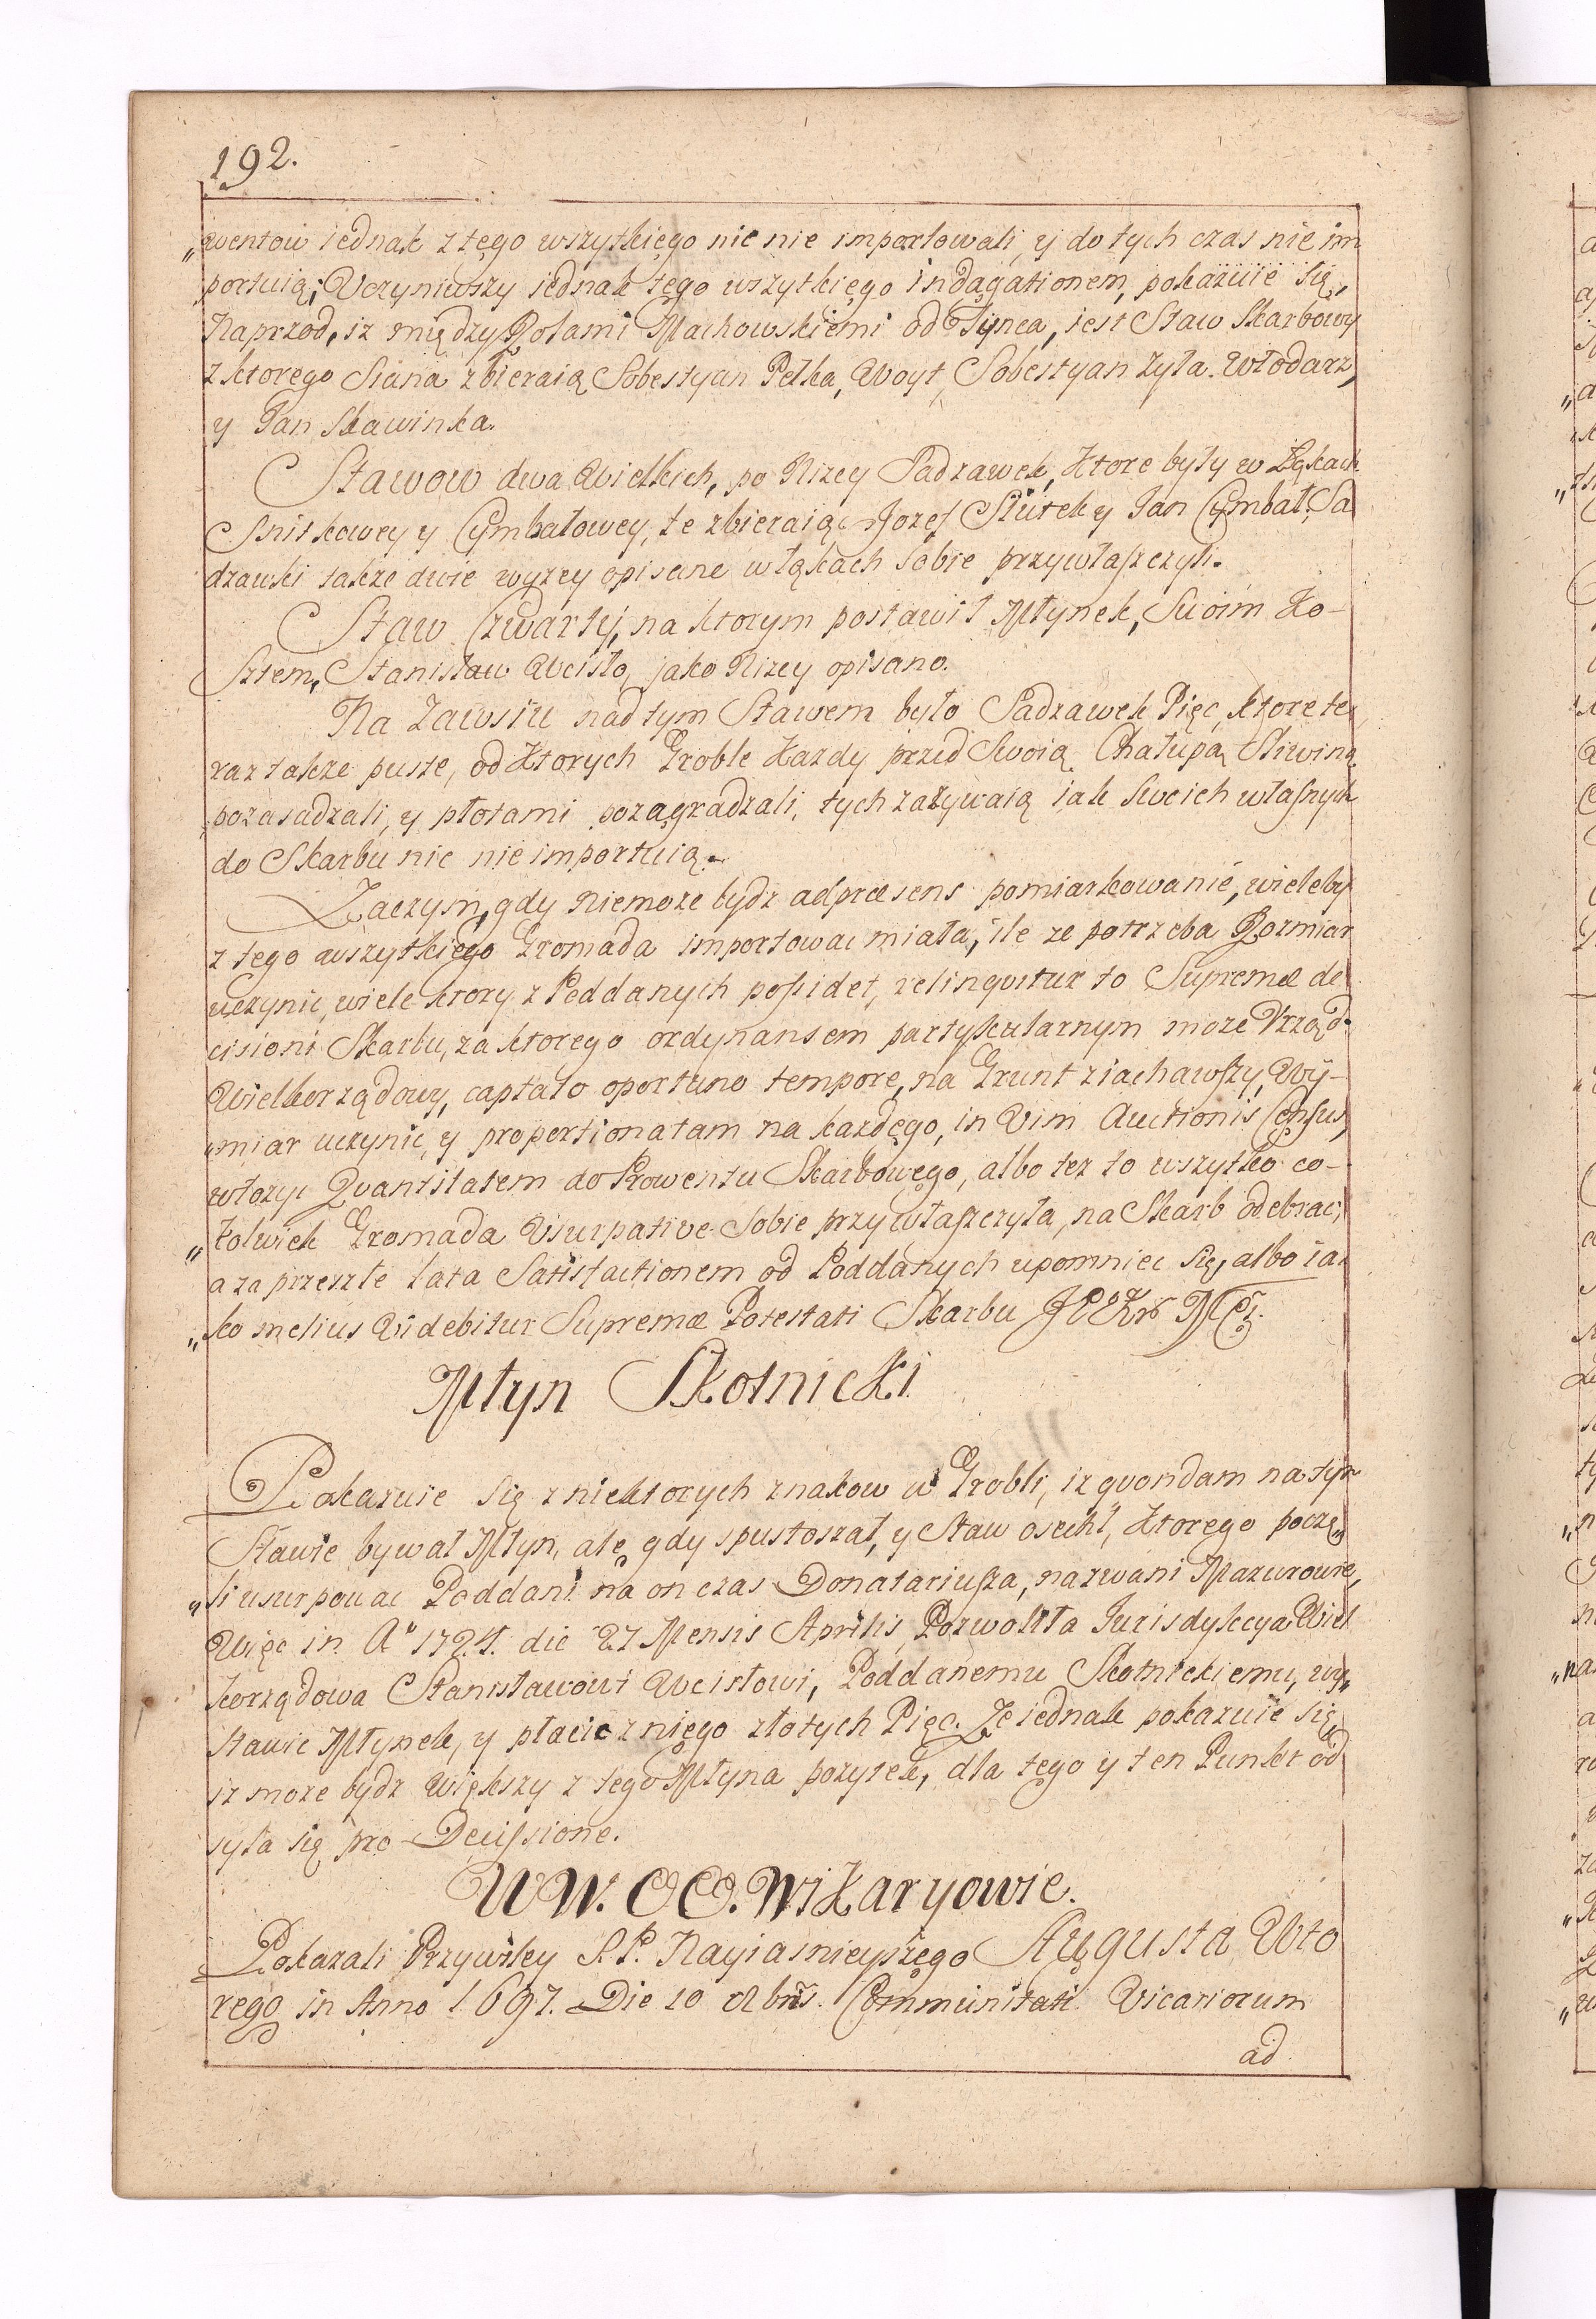 192.
„wentow iednak z tego wszytkiego nic nie importowali, y do tych czas nie im
portuią; Vczyniwszy iednak tego wszytkiego indagationem, pokazuie się,
Naprzod, iz między Rolami Machowskiemi od Tynca, iest Staw Skarbowy
z ktorego Siana zbieraią Sobestyan Pełka, Woyt, Sobestyan Zyła. Włodarz,
y Jan Skawinka.
Stawow dwa Wielkich, po Nizey Sadzawek, Ktore były w Łąkach
Sniskowey y Cymbałowey, te zbieraią Jozef Slutek y Jan Cymbał. Sa
dzawki takze dwie wyzey opisane w łąkach sobie przywłaszczyli.
Staw Czwarty, na ktorym postawił Młynek, Swoim Ko-
sztem, Stanisław Wcisło, jako Nizey opisano.
Na Zawsiu nad tym Stawem było Sadzawek Pięc, ktore te
raz takze puste, od Ktorych Groble Kazdy przed Swoią Chałupą Sliwiną
pozasadzali, y płotami pozagradzali, tych zazywaią iak Swoich własnych
do Skarbu nic nie importuią.
Zaczym, gdy niemoze bydz ad præsens pomiarkowanie, wieleby
z tego wszytkiego Gromada importowac miała, ile ze potrzeba Rozmiar
uczynic, wiele ktory z Poddanych possidet, relinqvitur to Supremæ de
cisioni Skarbu, za ktorego ordynansem partykularnym moze Vrząd
Wielkorządowy, captato oportuno tempore, na Grunt ziachawszy, Wy-
„miar uczynic, y proportionatam na kazdego, in Vim Auctionis Census,
włozyc Qvantitatem do Prowentu Skarbowego, albo tez to wszytko co-
„kolwiek Gromada Vsurpative Sobie przywłaszczyła, na Skarb odebrac;
a za przeszłe Lata Satisfactionem od Poddanych upomniec się, albo ia-
„ko melius Videbitur Supremæ Potestati Skarbu JKMci.
Młyn Skotnicki
Pokazuie się z niektorych znakow w Grobli, iz qvondam na tym
Stawie bywał Młyn, ale gdy spustoszał, y Staw osechł, Ktorego poczę„
„li usurpowac Poddani na on czas Donatariusza, nazwani Mazurowie,
Więc in Aº 1724. die 27 Mensis Aprilis, Pozwoliła Jurisdykcya Wiel
korządowa Stanisławowi Wcisłowi, Poddanemu Skotnickiemu, wy„
stawic Młynek, y płacic z niego złotych Pięc. Ze iednak pokazuie się
iz moze bydz Większy z tego Młyna pozytek, dla tego y ten Punkt od
syła się pro Decissione.
WW. OO. Wikaryowie.
Pokazali Przywiley S. P. Nayiasnieyszego Augusta Wto
rego in Anno 1697. Die 10 Xbris. Communitati Vicariorum
ad